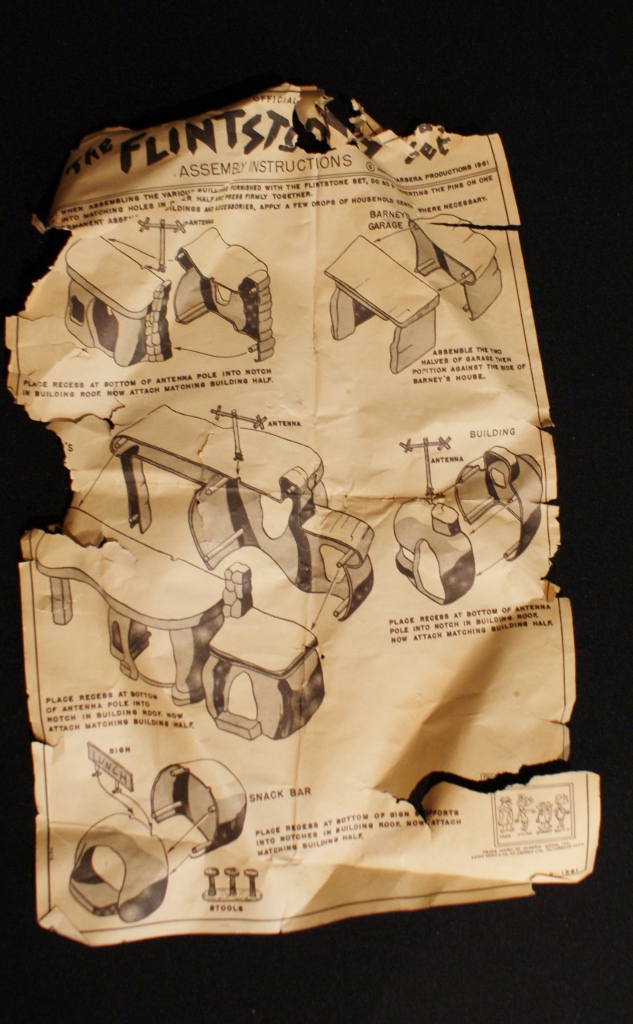 OFFICIAL
THE FLINTSTO Set
ASSEMBLY INSTRUCTIONS ©
BARBERA PRODUCTIONS 1961
WHEN ASSEMBLING THE VARIOUS BUILD FURNISHED WITH THE FLINTSTONE SET, DO SO RTING THE PINS ON ONE
INTO MATCHING HOLES IN R HALF AND PRESS FIRMLY TOGETHER.
MANENT ASSEM ILDINGS AND ACCESSORIES, APPLY A FEW DROPS OF HOUSEHOLD CEM WHERE NECESSARY.
ANTENNA
BARNEY
GARAGE
ASSEMBLE THE TWO
HALVES OF GARAGE THEN
POSITION AGAINST THE SIDE OF
BARNEY'S HOUSE.
PLACE RECESS AT BOTTOM OF ANTENNA POLE INTO NOTCH
IN BUILDING ROOF. NOW ATTACH MATCHING BUILDING HALF.
'S
ANTENNA
BUILDING
ANTENNA
PLACE RECESS AT BOTTOM OF ANTENNA
POLE INTO NOTCH IN BUILDING ROOF.
NOW ATTACH MATCHING BUILDING HALF.
PLACE RECESS AT BOTTOM
OF ANTENNA POLE INTO
NOTCH IN BUILDING ROOF. NOW
ATTACH MATCHING BUILDING HALF.
SIGN
LUNCH
SNACK BAR
PLACE RECESS AT BOTTOM OF SIGN SUPPORTS
INTO NOTCHES IN BUILDING ROOF. NOW ATTACH
MATCHING BUILDING HALF.
STOOLS